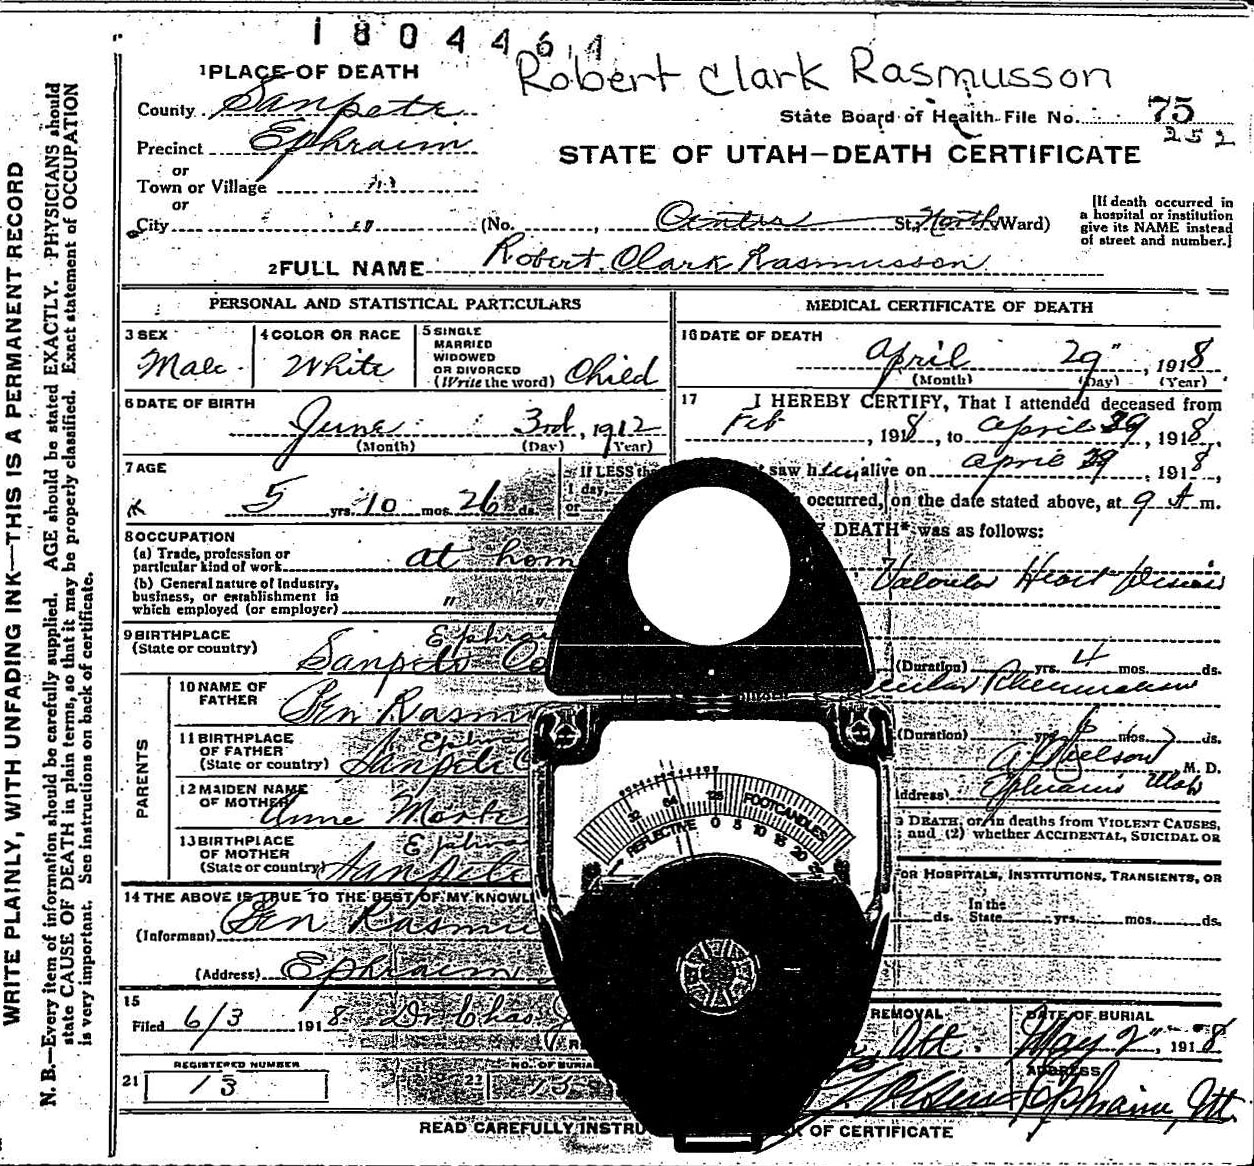 1804461
Robert Clark Rasmusson
1 PLACE OF DEATH
County Sanpete
State Board of Health File No. 75
252
Precinct Ephraim
STATE OF UTAH—DEATH CERTIFICATE
or
Town or Village
or
City (No. Center St, North Ward)
[If death occurred in
a hospital or institution
give its NAME instead
of street and number.]
2 FULL NAME Robert Clark Rasmusson
PERSONAL AND STATISTICAL PARTICULARS
3 SEX Male
4 COLOR OR RACE White
5 SINGLE
MARRIED
WIDOWED
OR DIVORCED
(Write the word) Child
6 DATE OF BIRTH
June 3rd, 1912
(Month) (Day) (Year)
7 AGE
5 yrs. 10 mos. 26 ds.
IF LESS
1 day,
or
8 OCCUPATION
(a) Trade, profession or
particular kind of work at hom
(b) General nature of Industry,
business, or establishment in
which employed (or employer) " "
9 BIRTHPLACE
(State or country)
Ephrai
Sanpete Co
PARENTS
10 NAME OF
FATHER
Rasmu
11 BIRTHPLACE
OF FATHER
(State or country)
Ephr
Sanpete C
12 MAIDEN NAME
OF MOTHER
Anne
13 BIRTHPLACE
OF MOTHER
(State or country)
Ephra
Sanpete
14 THE ABOVE IS TRUE TO THE BEST OF MY KNOWL
(Informant) Rasmu
(Address) Ephraim
15
Filed 6/3 1918 Dr Chas
REGISTERED NUMBER
21 13
NO. OF BURIAL
22 13
MEDICAL CERTIFICATE OF DEATH
16 DATE OF DEATH
April 29", 1918
(Month) (Day) (Year)
17 I HEREBY CERTIFY, That I attended deceased from
Feb, 1918, to April 29, 1918,
saw h alive on April 29, 1918,
occurred, on the date stated above, at 9 A m.
DEATH* was as follows:
Valvular Heart Diseas
(Duration) yrs. 4 mos. ds.
Rheumatism
(Duration) yrs. 6 mos. ds.
A Nielson M. D.
ddress) Ephraim Utah
DEATH, or, in deaths from VIOLENT CAUSES,
and (2) whether ACCIDENTAL, SUICIDAL OR
OR HOSPITALS, INSTITUTIONS, TRANSIENTS, OR
ds. In the
State yrs. mos. ds.
REMOVAL
DATE OF BURIAL
May 2", 1918
ADDRESS
Ephraim, Ut
READ CAREFULLY INSTRU K OF CERTIFICATE
WRITE PLAINLY, WITH UNFADING INK—THIS IS A PERMANENT RECORD
N. B.—Every item of information should be carefully supplied. AGE should be stated EXACTLY. PHYSICIANS should
state CAUSE OF DEATH in plain terms, so that it may be properly classified. Exact statement of OCCUPATION
is very important. See instructions on back of certificate.
32 64 128 FOOTCANDLES
REFLECTIVE 0 5 10 15 20